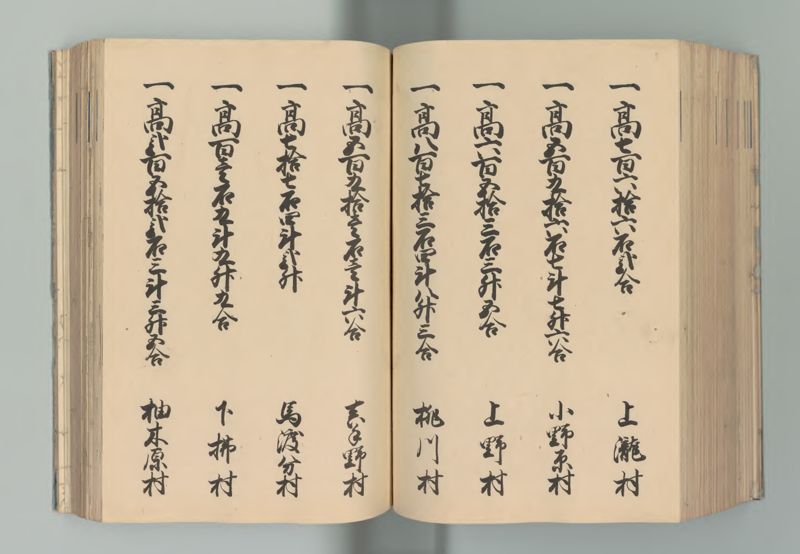 一高七百六拾六石弐合 上瀧村
一高五百九拾六石七斗七升六合 小野原村
一高六百五拾三石三升五合 上野村
一高八百七拾三石四斗八升三合 桃川村
一高五百九拾壱石壱斗六合 吉野村
一高七拾七石四斗弐升 馬渡分村
一高百壱石九斗九升九合 下拂村
一高弐百五拾弐石三斗三升五合 柚木原村